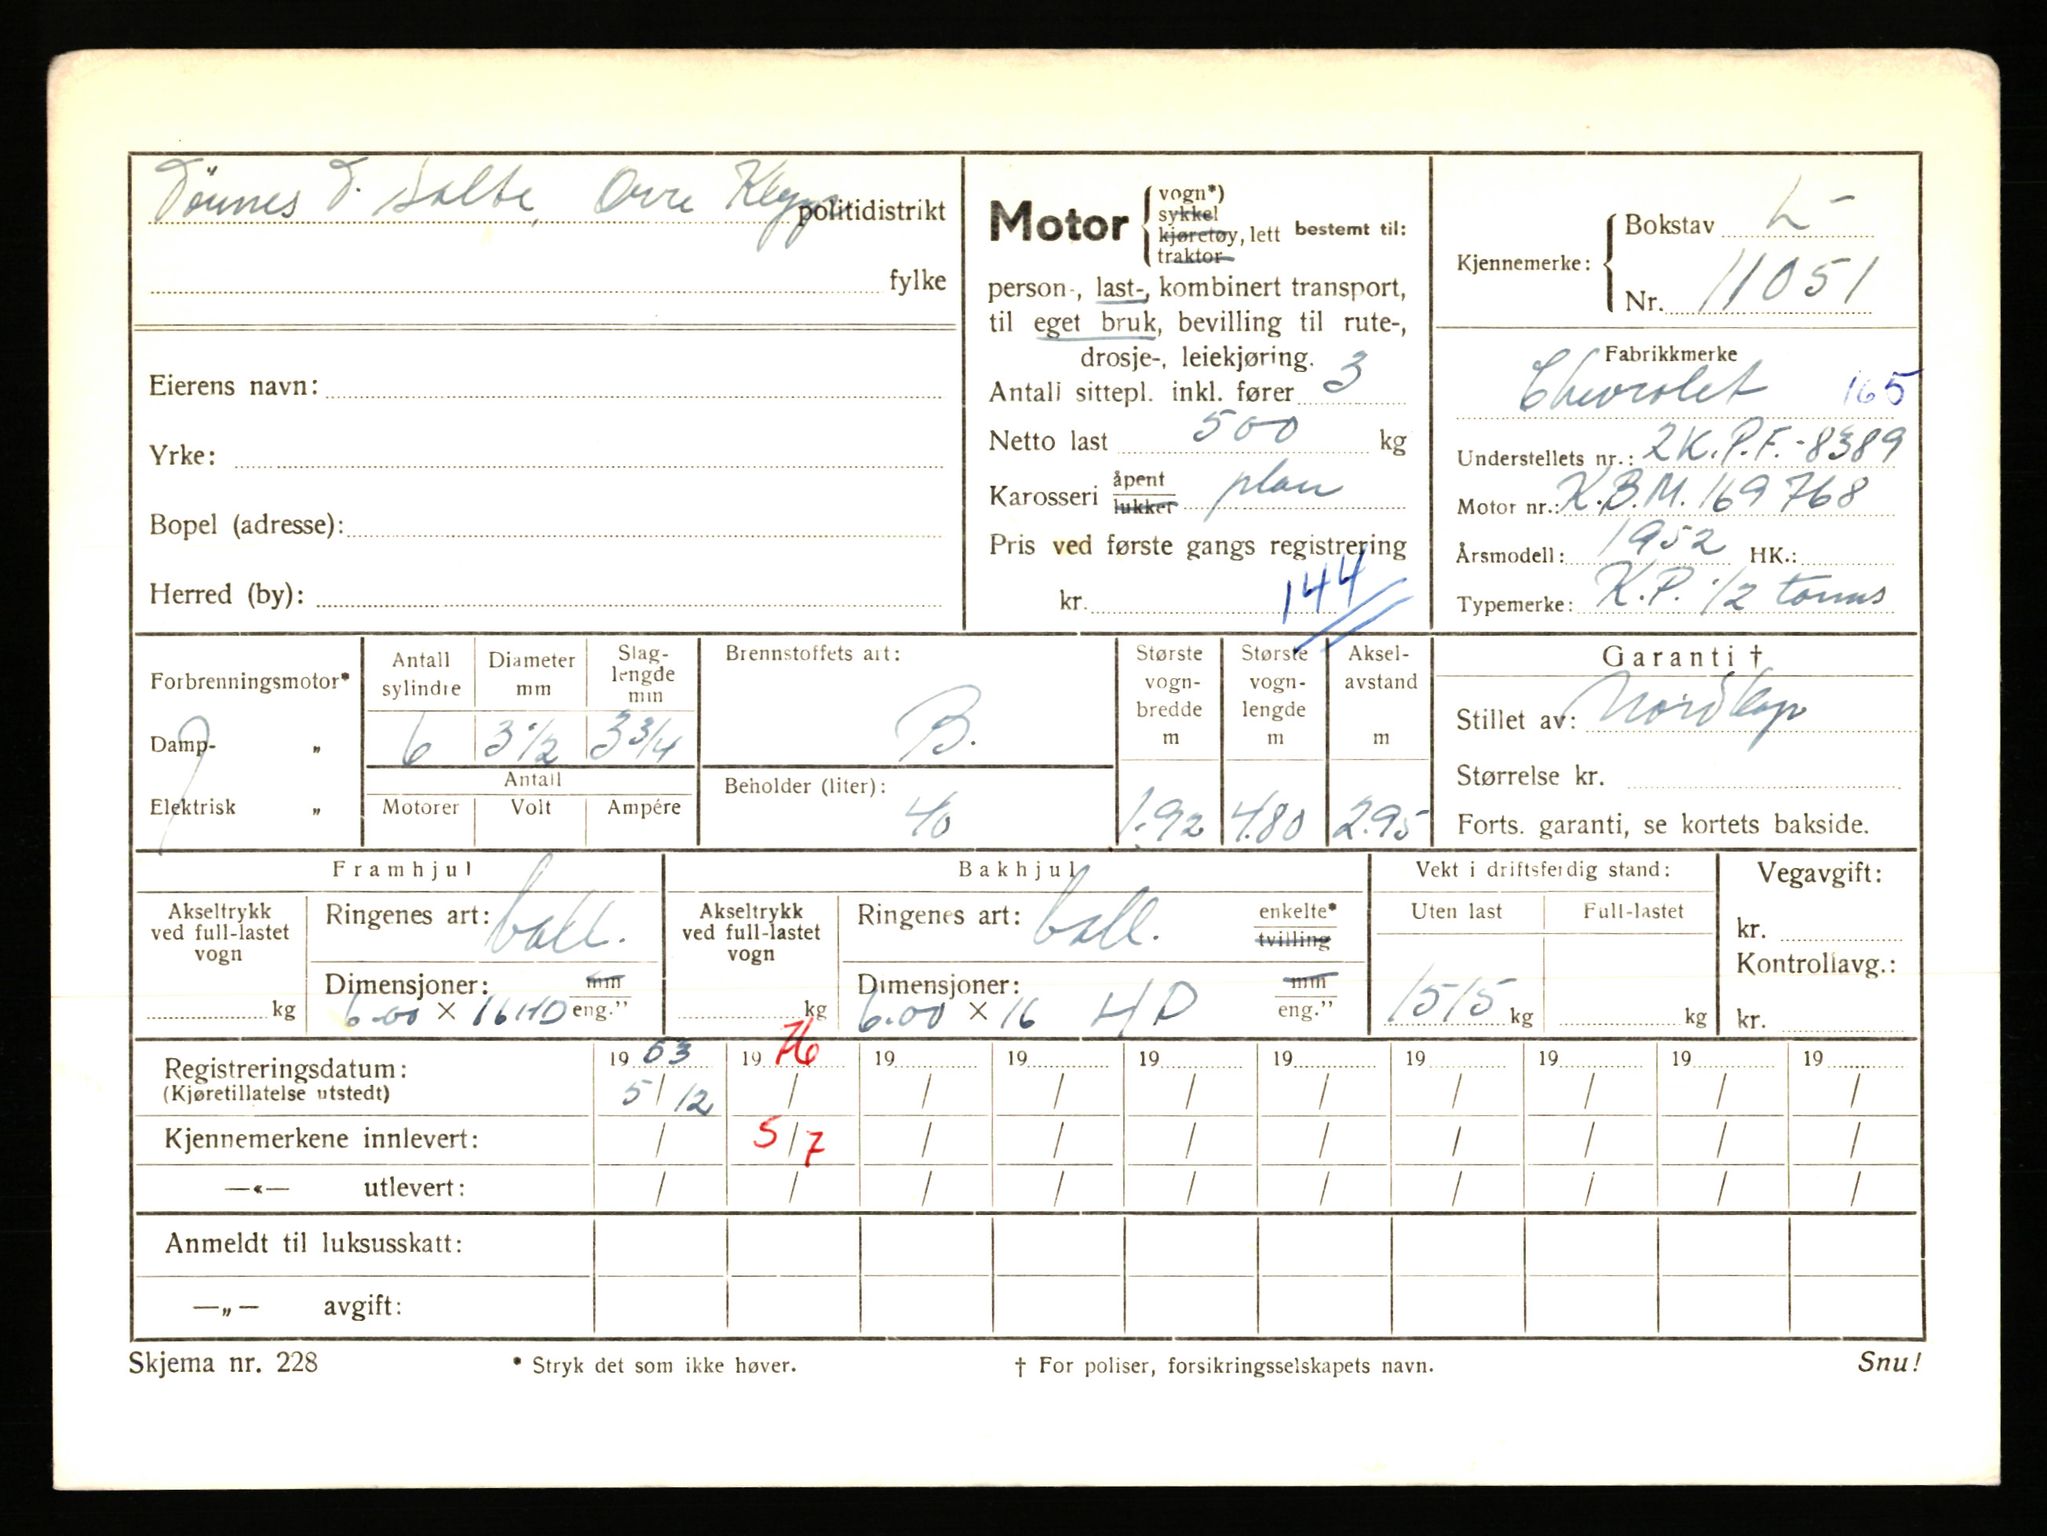 Tönnes T. Salte, Orre Klepp politidistrikt
fylke
Eierens navn:
Yrke:
Bopel (adresse):
Herred (by):
Motor { vogn*)
sykkel
kjøretøy, lett
traktor
bestemt til:
person-, last-, kombinert transport,
til eget bruk, bevilling til rute-,
drosje-, leiekjøring.
Antall sittepl. inkl. fører 3
Netto last 500 kg
Karosseri åpent
lukket plan
Pris ved første gangs registrering
kr. 144
Kjennemerke: { Bokstav L-
Nr. 11051
Fabrikkmerke
Chevrolet 165
Understellets nr.: 2K.P.F.-8389
Motor nr.: K.B.M. 169768
Årsmodell: 1952 HK.:
Typemerke: K.P. 1/2 tonns
Forbrenningsmotor*
Damp- „
Elektrisk „
Antall sylindre
6
Diameter mm
3 1/2
Slaglengde mm
3 3/4
Antall
Motorer Volt Ampére
Brennstoffets art:
B.
Beholder (liter):
40
Største vogn-bredde m
1.92
Største vogn-lengde m
4.80
Aksel-avstand m
2.95
Garanti †
Stillet av: Nordkap
Størrelse kr.
Forts. garanti, se kortets bakside.
Framhjul
Akseltrykk
ved full-lastet
vogn
kg
Ringenes art: ball.
Dimensjoner: mm
6.00 × 16 HD eng.”
Bakhjul
Akseltrykk
ved full-lastet
vogn
kg
Ringenes art: ball. enkelte*
tvilling
Dimensjoner: mm
6.00 × 16 HD eng.”
Vekt i driftsferdig stand:
Uten last Full-lastet
1515 kg kg
Vegavgift:
kr.
Kontrollavg.:
kr.
Registreringsdatum: 19 53 19 76 19 19 19 19 19 19 19 19
(Kjøretillatelse utstedt) 5/12 / / / / / / / / /
Kjennemerkene innlevert: / 5/7 / / / / / / / /
—«— utlevert: / / / / / / / / / /
Anmeldt til luksusskatt:
—„— avgift:
Skjema nr. 228 * Stryk det som ikke høver. † For poliser, forsikringsselskapets navn. Snu!